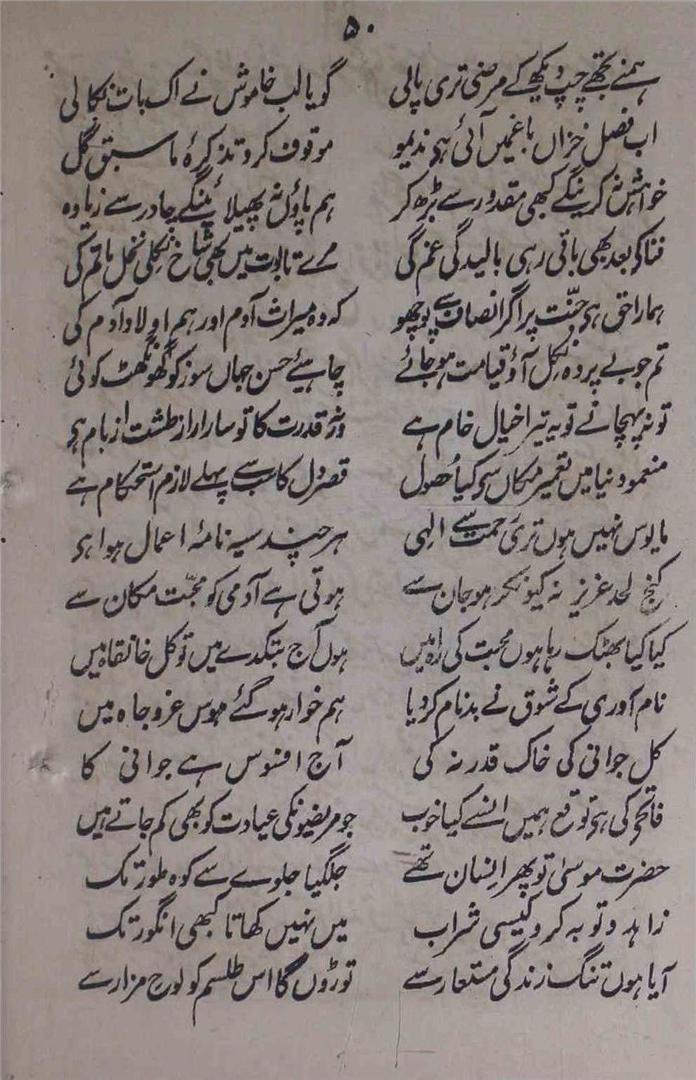 ۵۰
ہمنے تجھے چپ دیکھ کے مرضی تری پالی گویا لب خاموش نے اک بات نکالی
اب فصل خزاں باغمیں آئی ہی ندیمو موقوف کرو تذکرۂ ما سبق گل
خواہش نکرینگے کبھی مقدور سے بڑھ کر ہم پاؤں نہ پھیلائینگے چادر سے زیادہ
فنا کے بعد بھی باقی رہی بالیدگی غم کی مرے تابوت میں بھی شاخ نکلی نخل ماتم کی
ہمارا حق ہی جنّت پر اگر انصاف سے پوچھو کہ وہ میراث آدم اور ہم اولاد آدم کی
تم جو بے پردہ نکل آؤ قیامت ہوجائے چاہیے حسن جہاں سوز کو گھونگھٹ کوئی
تو نہ پہچانے تو یہ تیرا خیال خام ہے ورنہ قدرت کا تو سارا راز طشت از بام ہی
منعمو دنیا میں تعمیر مکاں سے کیا حصول قصر دل کا سب سے پہلے لازم استحکام ہے
مایوس نہیں ہوں تری رحمت سے الٰہی ہر چند سیہ نامۂ اعمال ہوا ہی
کنج لحد عزیز نہ کیونکر ہو جان سے ہوتی ہے آدمی کو محبّت مکان سے
کیا کیا بھٹک رہا ہوں محبت کی راہ میں ہوں آج بتکدے میں تو کل خانقاہ میں
نام آوری کے شوق نے بدنام کردیا ہم خوار ہوگئے ہوس عز و جاہ میں
کل جوانی کی خاک قدر نہ کی آج افسوس ہے جوانی کا
فاتحے کی ہی توقع ہمیں انسے کیا خوب جو مریضونکی عیادت کو بھی کم جاتے ہیں
حضرت موسیٰ تو پھر انسان تھے جلگیا جلوے سے کوہ طور تک
زاہدو توبہ کرو کیسی شراب میں نہیں کھاتا کبھی انگور تک
آیا ہوں تنگ زندگی مستعار سے توڑوں گا اس طلسم کو لوح مزار سے